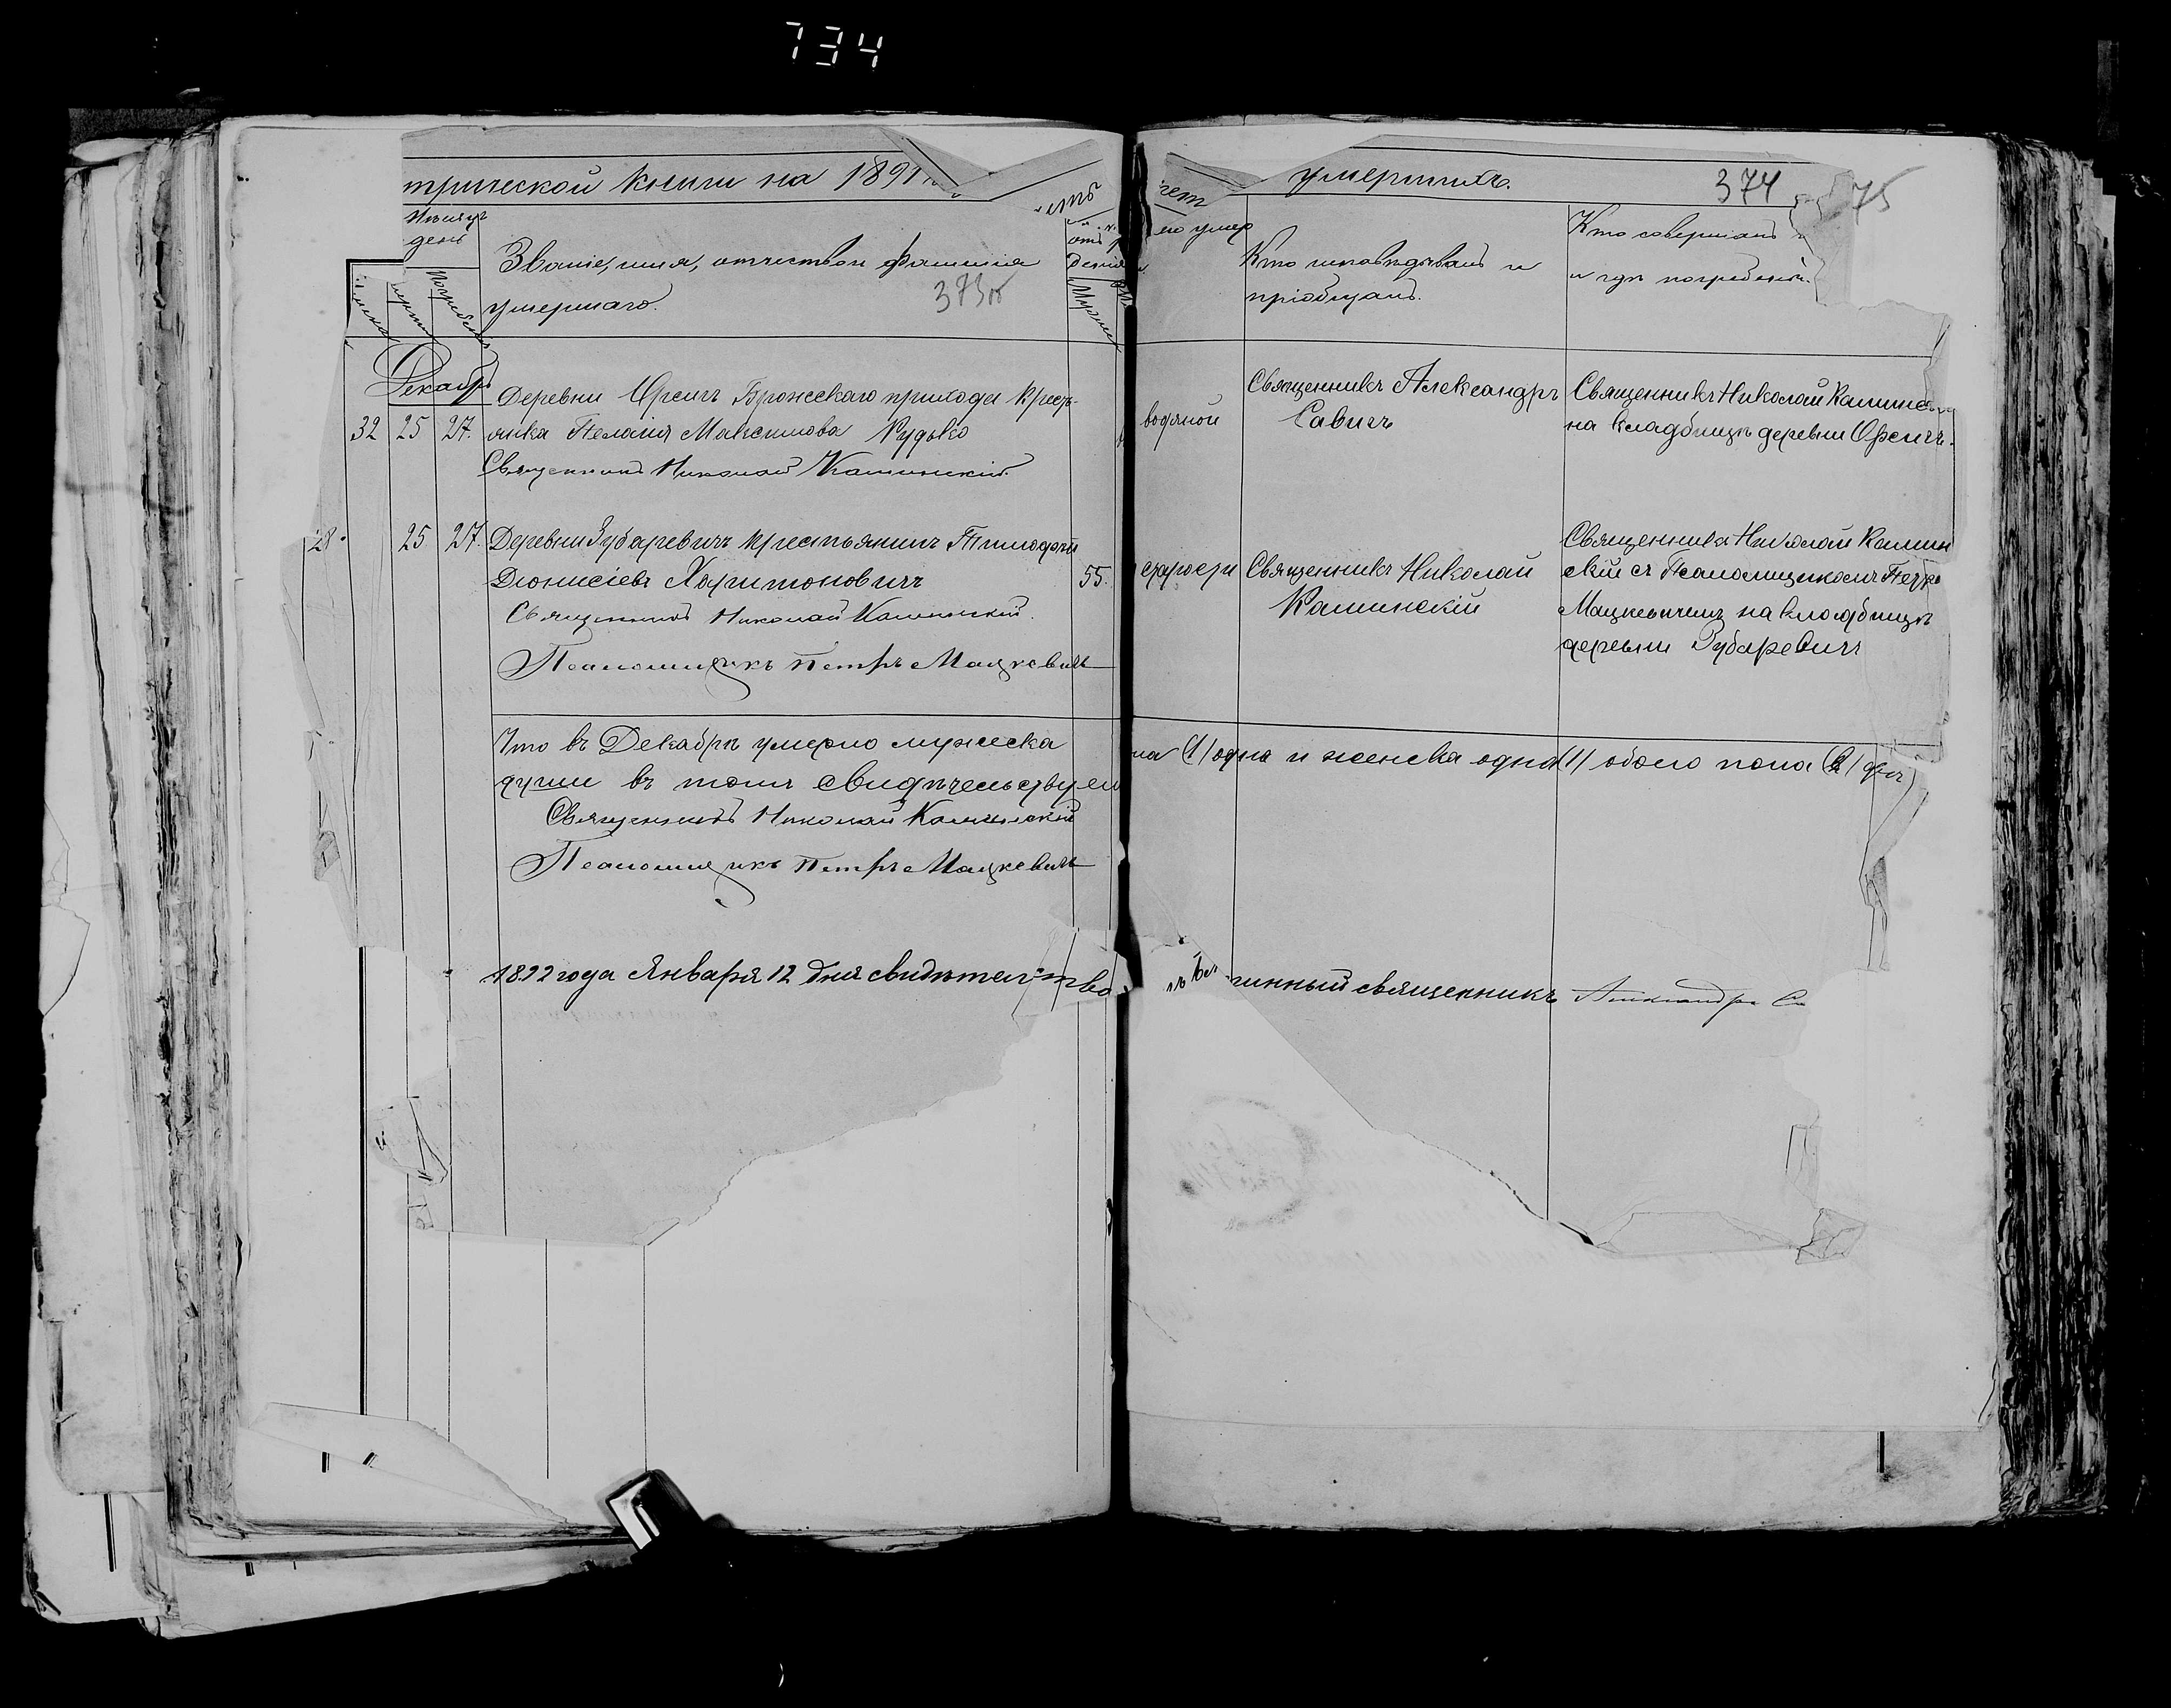 734
трической книги на 1891
умершихъ.
374
75
Мѣсяцъ
день
Званіе, имя, отчество и фамилія
умершаго.
373об
Кто исповѣдывалъ и
пріобщалъ.
Кто совершалъ
и гдѣ погребенъ.
Декабрь
32 25 27.
Деревни Орсичъ Брожскаго прихода крестъ-
янка Пелагія Максимова Рудько
Священникъ Николай Каминскій
водяной
Священникъ Александръ
Савичъ
Священникъ Николай Каминс
на кладбищѣ деревни Орсичъ.
28. 25 27.
Деревни Зубаревичъ крестьянинъ Тимофей
Діонисіевъ Харитоновичъ
55.
Священникъ Николай Каминскій.
Псаломщикъ Петръ Мацкевичъ
старости
Священникъ Николай
Каминскій
Священникъ Николай Камин
скій съ Псаломщикомъ Петро
Мацкевичемъ на кладбищѣ
деревни Зубаревичъ
Что въ Декабрѣ умерло мужеска
па (1) одна и женска одна (1) обоего пола (2) двѣ
души въ томъ свидѣтельствуем
Священникъ Николай Каминскій
Псаломщикъ Петръ Мацкевичъ
1892 года Января 12 дня свидѣтельство
чинный священникъ Александръ Са